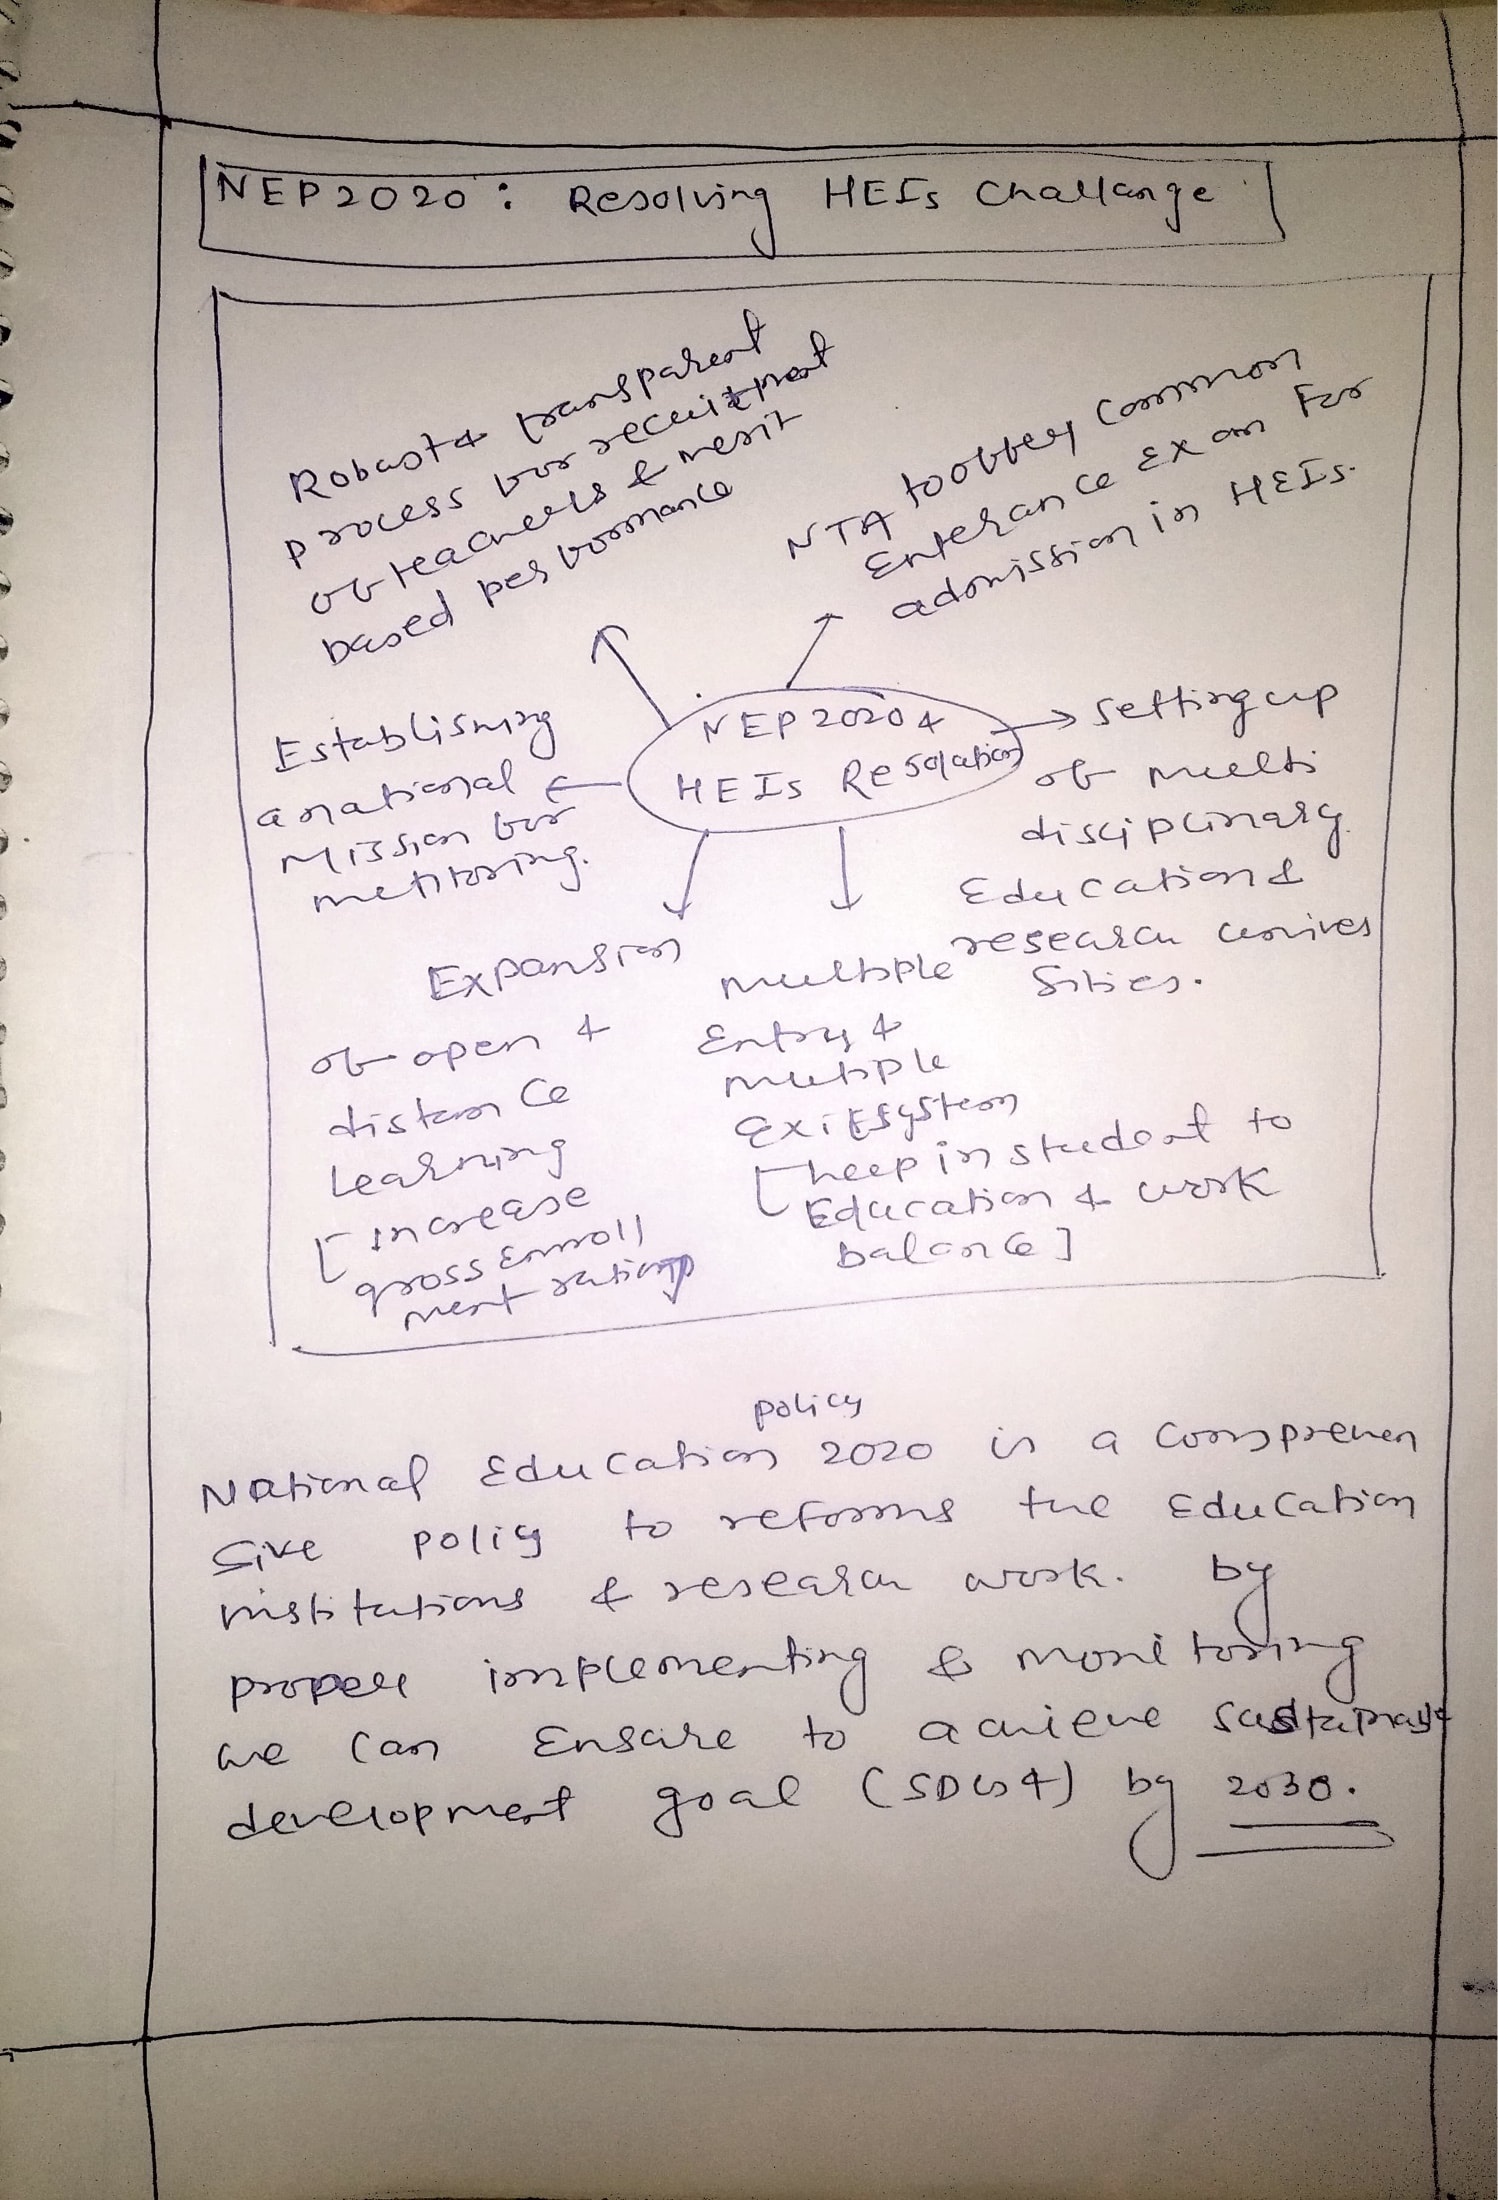 NEP2020: Resolving HEIs Challange
Robust &  transparent
process for recruitment
of teachers & merit
based performance
NTA to offer common
Enterance Exam For
admission in HEIs.
NEP 2020 &
HEIs Resolution
Establishing
a national
Mission for
metitoring.
setting up
of multi
disciplinary
Education &
research univer
sities.
Expansion
of open &
distance
Learning
[increase
gross enroll
ment ration]
multiple
Entry &
mutiple
Exit system
[heep in student to
Education & work
balance]
policy
National Education 2020 is a comprehen
sive policy to reforms the Education
institutions & research work. by
proper implementing & monitoring
we can Ensure to achieve
development goal (SDG4) by 2030.